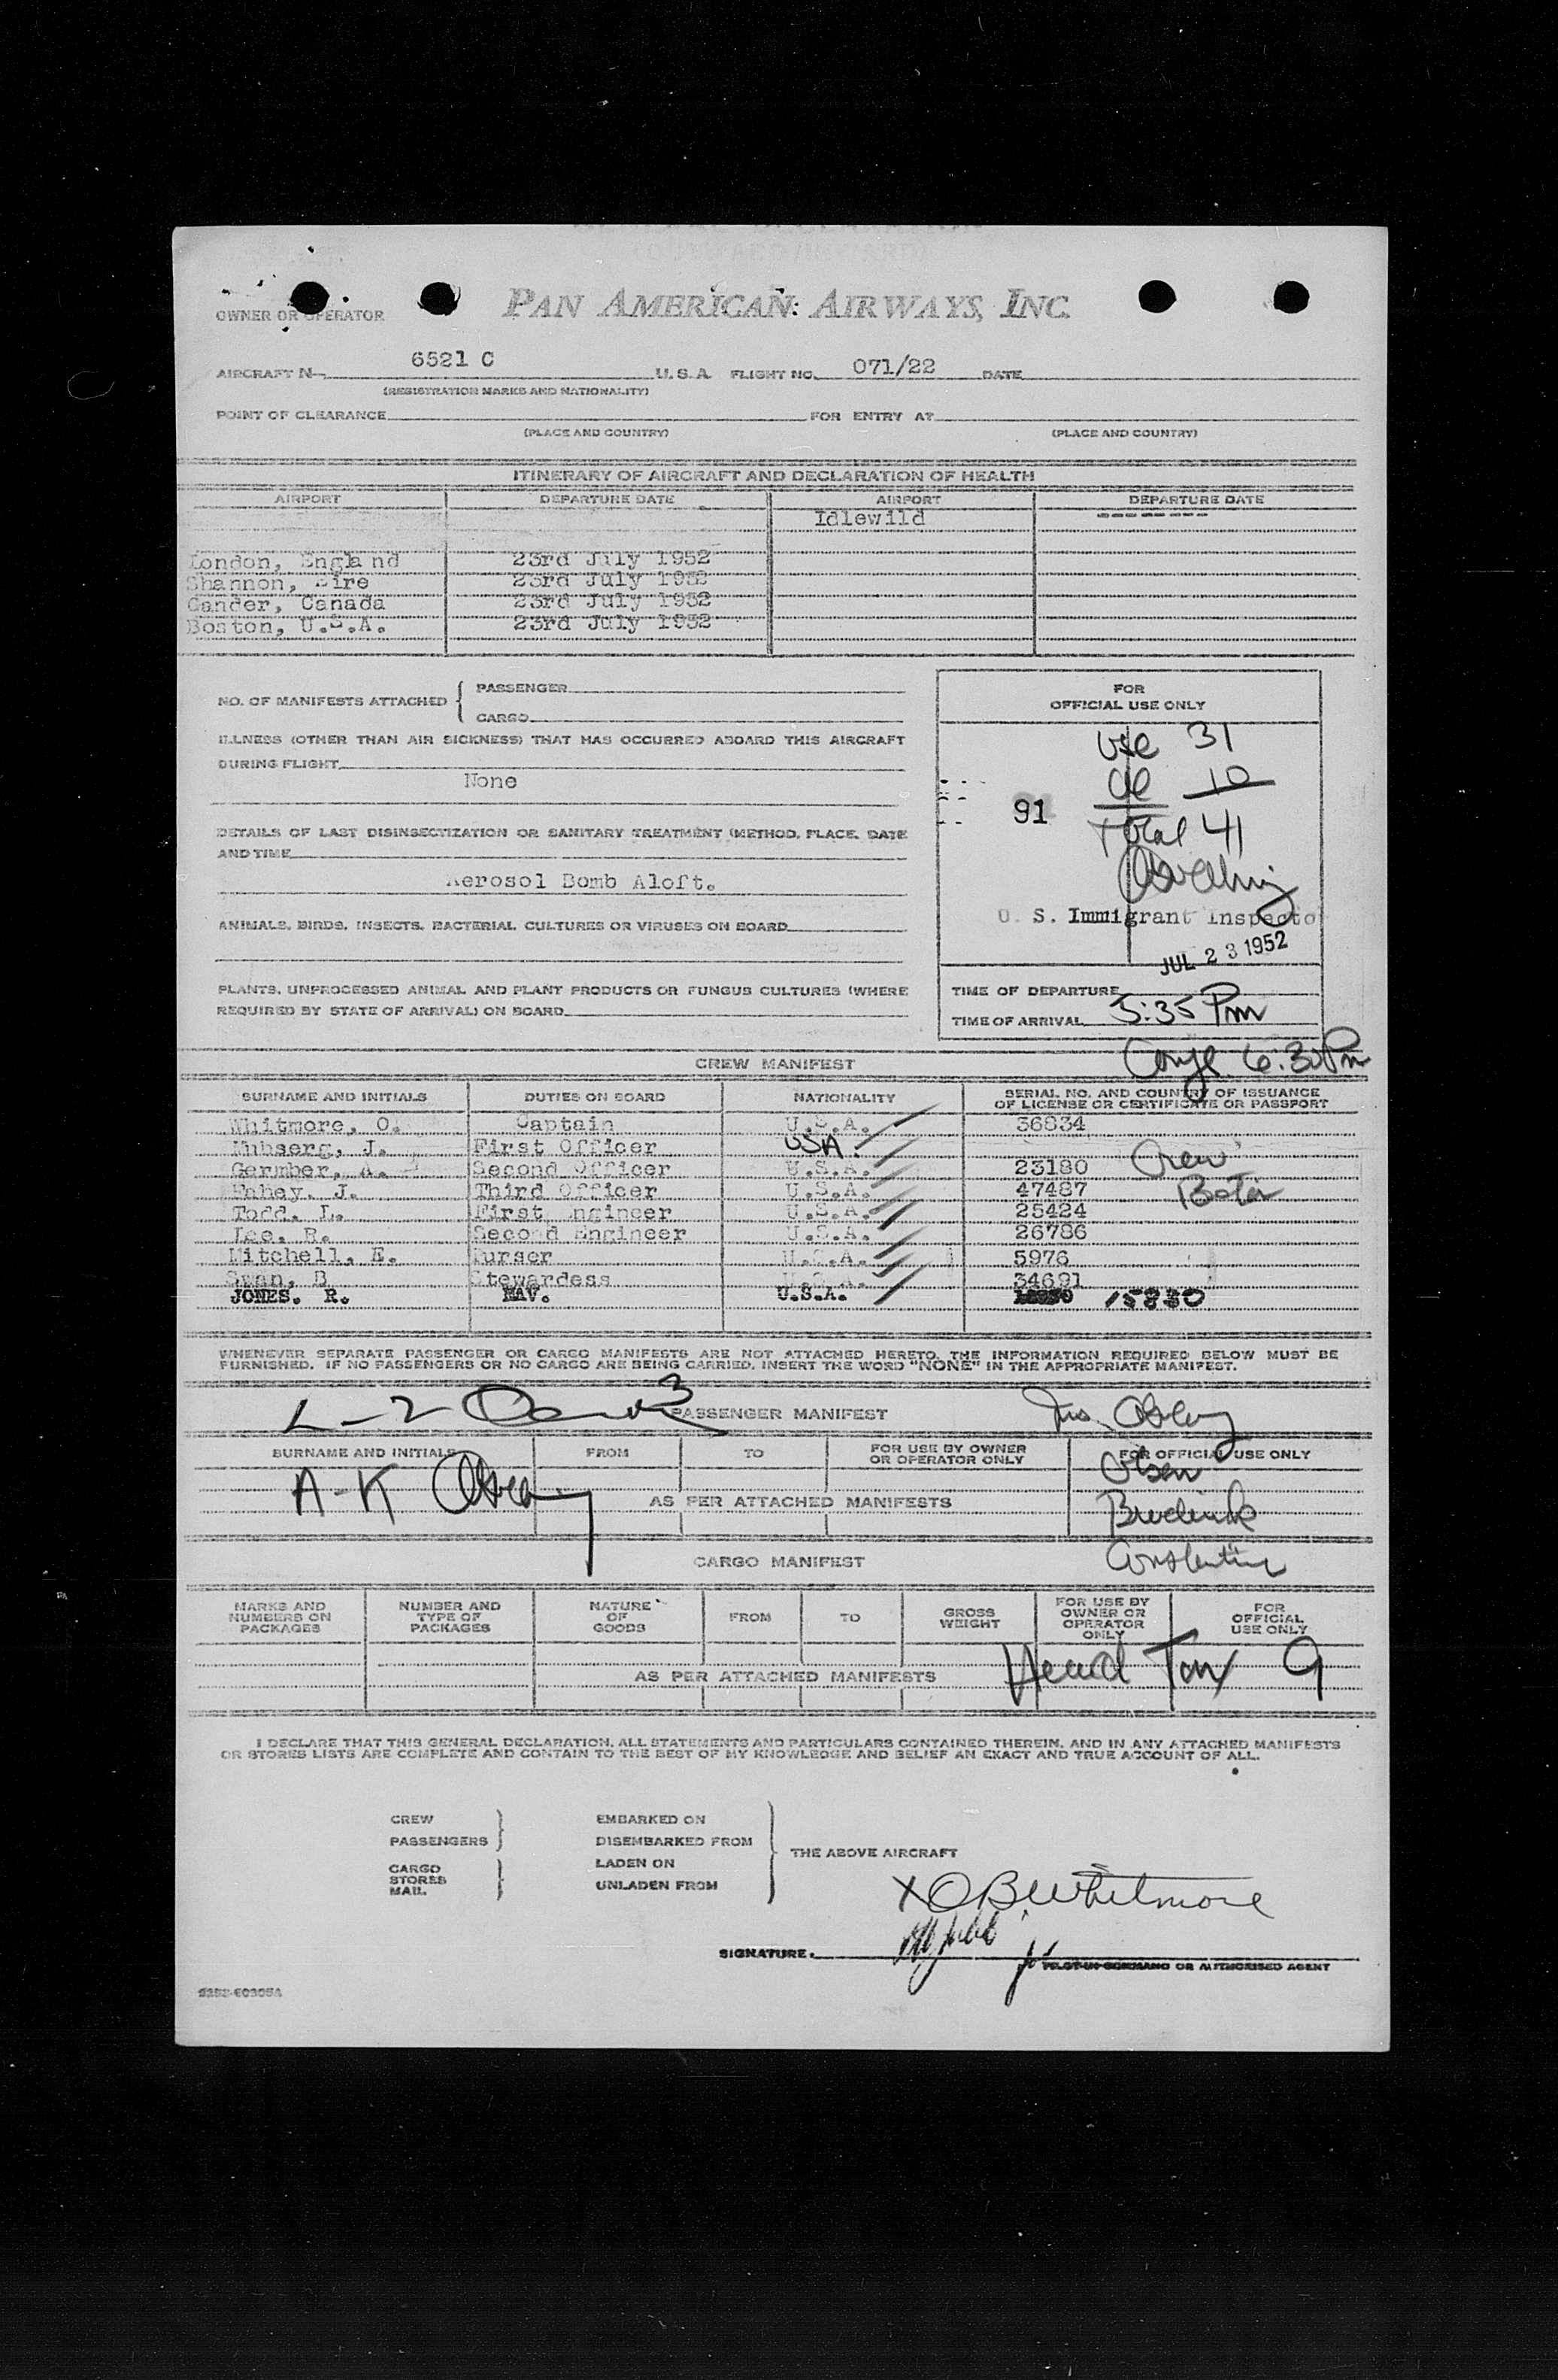 PAN AMERICAN AIRWAYS, INC.
OWNER OR OPERATOR
AIRCRAFT N- 6521 C U.S.A. FLIGHT NO. 071/22 DATE
(REGISTRATION MARKS AND NATIONALITY)
POINT OF CLEARANCE FOR ENTRY AT
(PLACE AND COUNTRY) (PLACE AND COUNTRY)
ITINERARY OF AIRCRAFT AND DECLARATION OF HEALTH
AIRPORT DEPARTURE DATE AIRPORT DEPARTURE DATE
Idlewild -------
London, England 23rd July 1952
Shannon, Eire 23rd July 1952
Gander, Canada 23rd July 1952
Boston, U.S.A. 23rd July 1952
NO. OF MANIFESTS ATTACHED { PASSENGER
CARGO
ILLNESS (OTHER THAN AIR SICKNESS) THAT HAS OCCURRED ABOARD THIS AIRCRAFT
DURING FLIGHT
None
DETAILS OF LAST DISINSECTIZATION OR SANITARY TREATMENT (METHOD, PLACE, DATE
AND TIME
Aerosol Bomb Aloft.
ANIMALS, BIRDS, INSECTS, BACTERIAL CULTURES OR VIRUSES ON BOARD
PLANTS, UNPROCESSED ANIMAL AND PLANT PRODUCTS OR FUNGUS CULTURES (WHERE
REQUIRED BY STATE OF ARRIVAL) ON BOARD
FOR
OFFICIAL USE ONLY
31
10
91
Total 41
U. S. Immigrant Inspecto
JUL 23 1952
TIME OF DEPARTURE
TIME OF ARRIVAL 5:35 Pm
6:30 Pm
CREW MANIFEST
SURNAME AND INITIALS DUTIES ON BOARD NATIONALITY SERIAL NO. AND COUNTRY OF ISSUANCE
OF LICENSE OR CERTIFICATE OR PASSPORT
Whitmore, O. Captain U.S.A. 36834
J. First Officer USA
Germber, A. Second Officer U.S.A. 23180 Crew
Fahey, J. Third Officer U.S.A. 47487
Todd, L. First Engineer U.S.A. 25424
Lee, R. Second Engineer U.S.A. 26786
Mitchell, E. Purser U.S.A. 5976
Swan, B Stewardess U.S.A. 34691
JONES. R. NAV. U.S.A. 15830
WHENEVER SEPARATE PASSENGER OR CARGO MANIFESTS ARE NOT ATTACHED HERETO, THE INFORMATION REQUIRED BELOW MUST BE
FURNISHED. IF NO PASSENGERS OR NO CARGO ARE BEING CARRIED, INSERT THE WORD "NONE" IN THE APPROPRIATE MANIFEST.
L-Z
PASSENGER MANIFEST
SURNAME AND INITIALS FROM TO FOR USE BY OWNER
OR OPERATOR ONLY FOR OFFICIAL USE ONLY
Olsen
A-K
AS PER ATTACHED MANIFESTS
CARGO MANIFEST
MARKS AND
NUMBERS ON
PACKAGES NUMBER AND
TYPE OF
PACKAGES NATURE
OF
GOODS FROM TO GROSS
WEIGHT FOR USE BY
OWNER OR
OPERATOR
ONLY FOR
OFFICIAL
USE ONLY
Head Tax 9
AS PER ATTACHED MANIFESTS
I DECLARE THAT THIS GENERAL DECLARATION, ALL STATEMENTS AND PARTICULARS CONTAINED THEREIN, AND IN ANY ATTACHED MANIFESTS
OR STORES LISTS ARE COMPLETE AND CONTAIN TO THE BEST OF MY KNOWLEDGE AND BELIEF AN EXACT AND TRUE ACCOUNT OF ALL.
CREW
PASSENGERS
CARGO
STORES
MAIL
EMBARKED ON
DISEMBARKED FROM
LADEN ON
UNLADEN FROM
THE ABOVE AIRCRAFT
X O B Whitmore
SIGNATURE.
PILOT-IN-COMMAND OR AUTHORISED AGENT